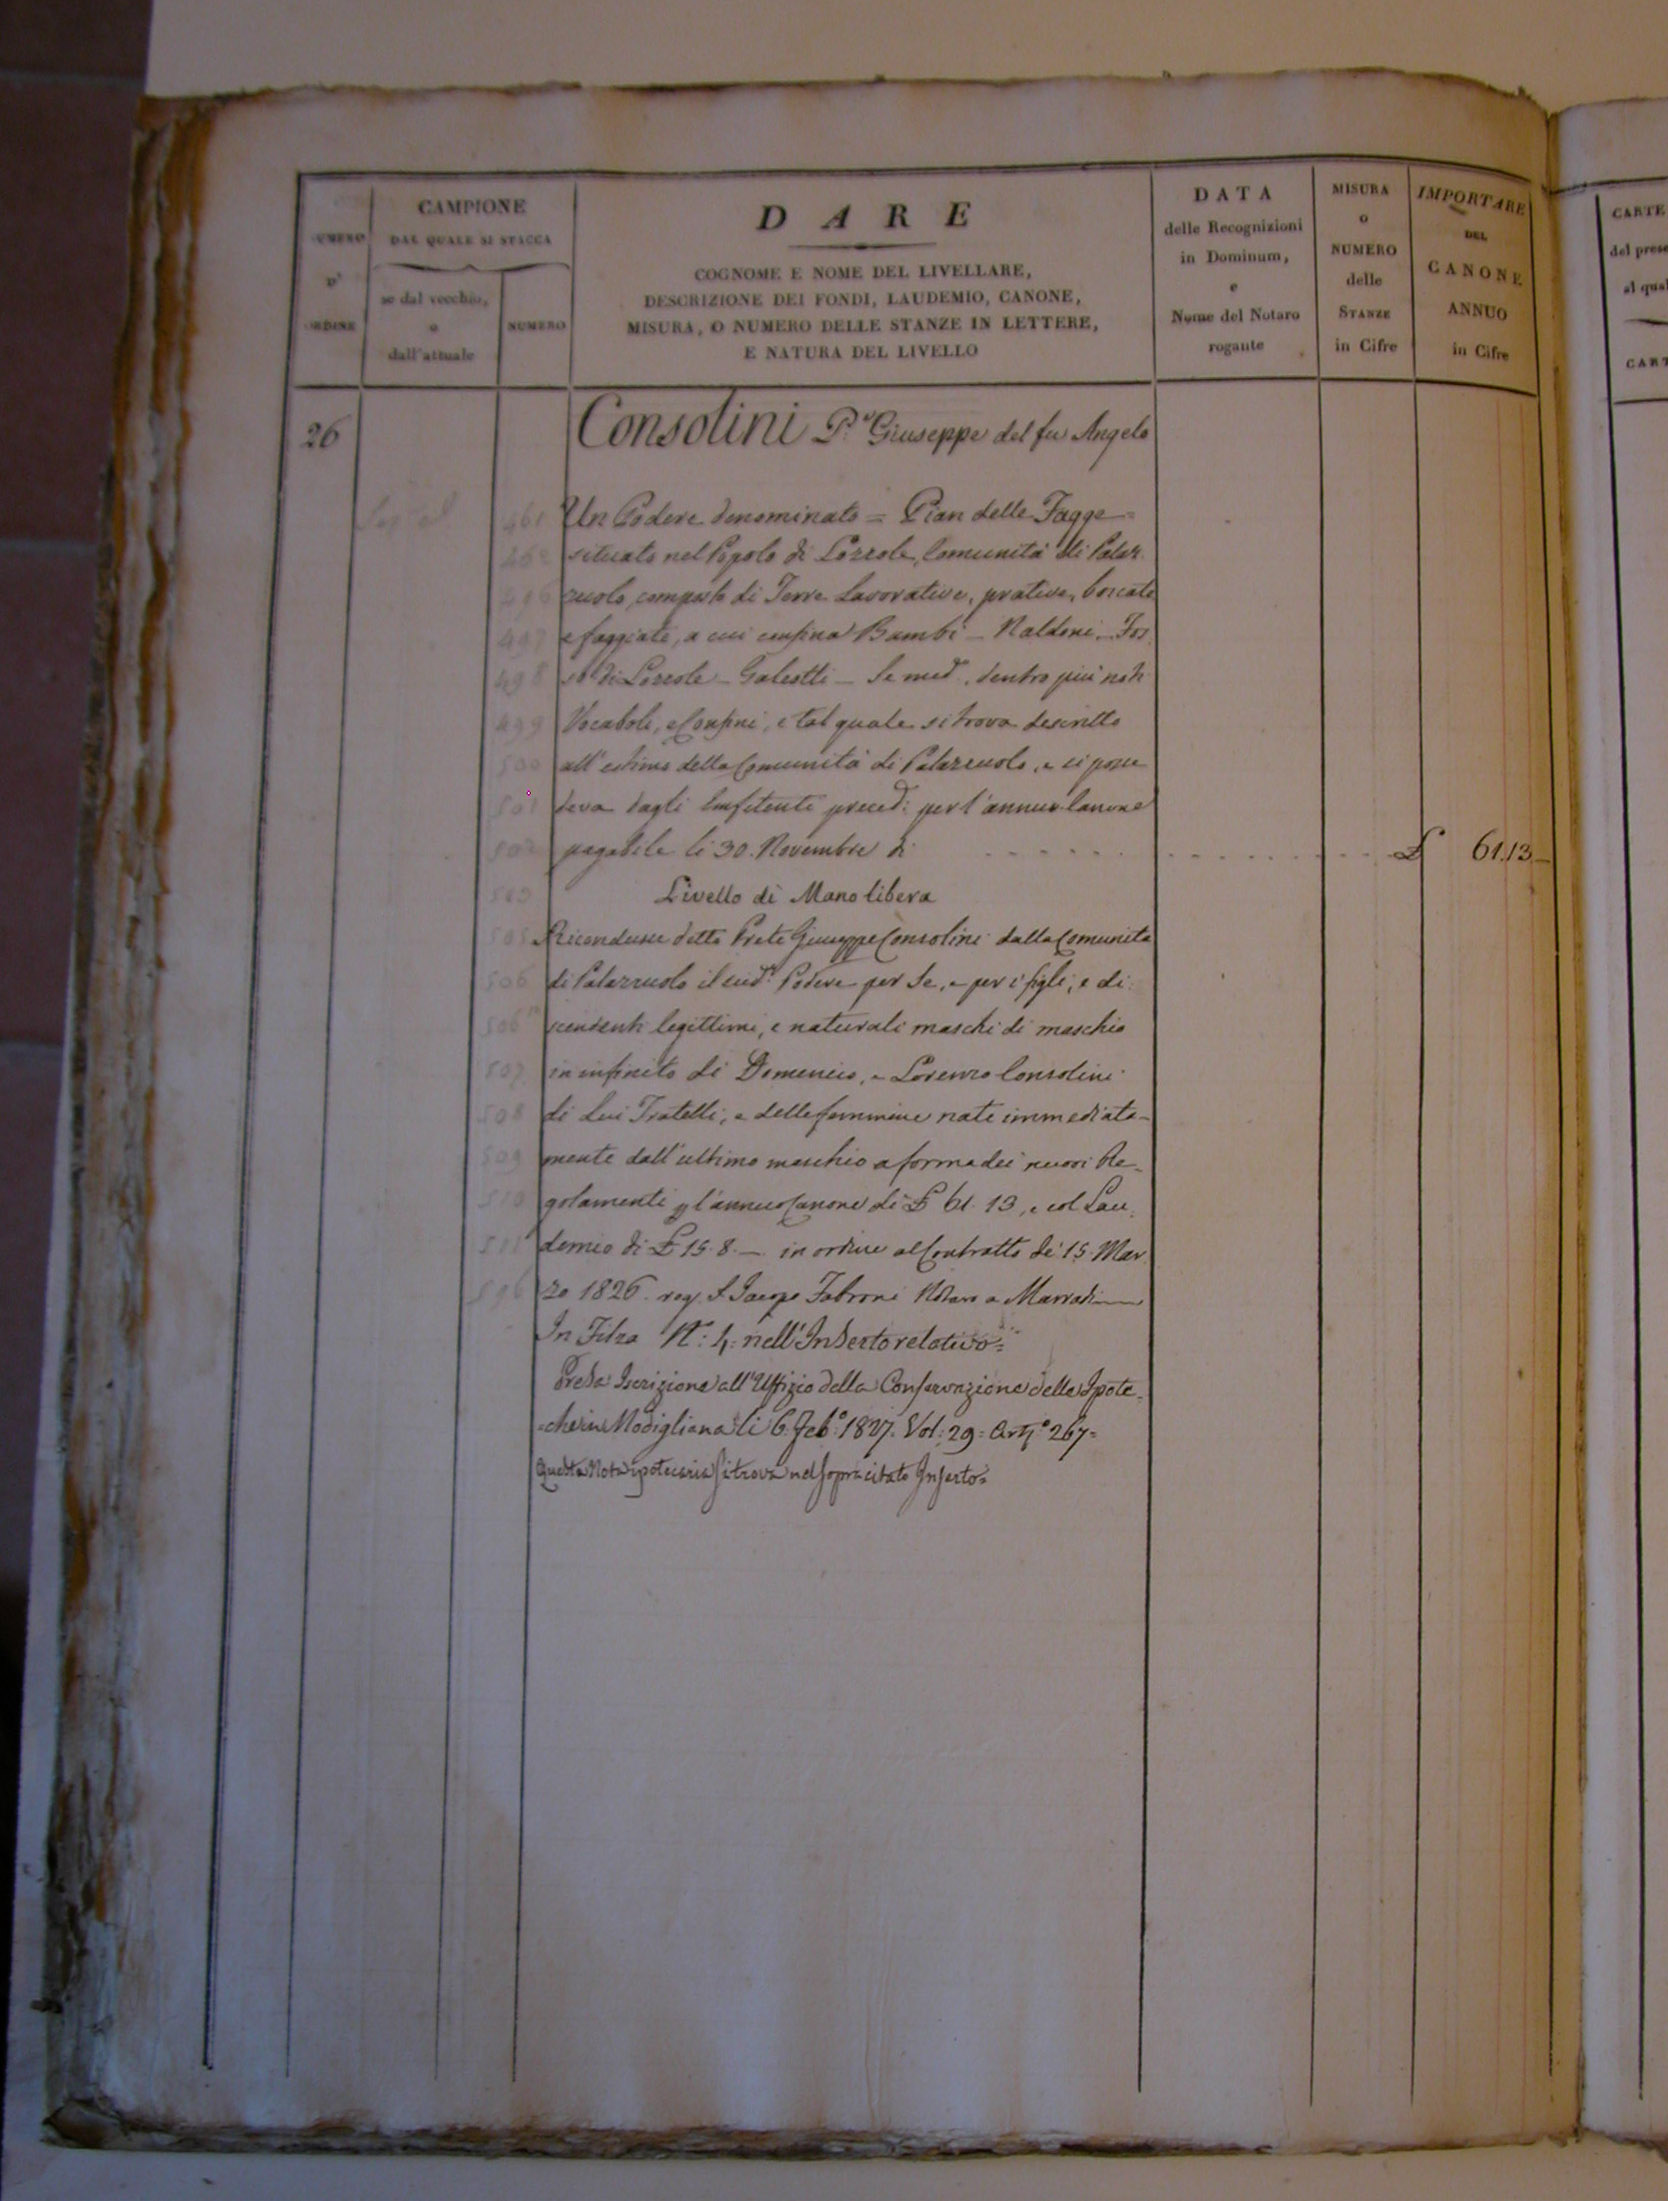 NUMERO
D'
ORDINE
CAMPIONE
DAL QUALE SI STACCA
se dal vecchio,
o
dall'attuale
NUMERO
DARE
COGNOME E NOME DEL LIVELLARE,
DESCRIZIONE DEI FONDI, LAUDEMIO, CANONE,
MISURA, O NUMERO DELLE STANZE IN LETTERE,
E NATURA DEL LIVELLO
DATA
delle Recognizioni
in Dominum,
e
Nome del Notaro
rogante
MISURA
o
NUMERO
delle
STANZE
in Cifre
IMPORTARE
DEL
CANONE
ANNUO
in Cifre
CARTE
del prese
al qual
CART
26
Consolini P.e Giuseppe del fu Angelo
461 Un Podere denominato = Pian delle Fagge =
situato nel Popolo di Lozzole, Comunità di Palaz
496 zuolo, composto di Terre Lavorative, prative, boscate
497 e faggiate, a cui confina Bambi - Naldoni - Fos
498 so di Lozzole - Galeotti - Se med.o, dentro più noti
499 Vocaboli, e Confini, e tal quale si trova descritto
500 all'estimo della Comunità di Palazzuolo, e si posse
501 deva dagli Emfiteuti preced.i per l'annuo Canone
502 pagabile li 30. Novembre di £ 61.13 -
503 Livello di Mano libera
505 Ricondusse detto Prete Giuseppe Consolini dalla Comunità
506 di Palazzuolo il sud.o Podere per Se, e per i figli, e di
506 scendenti legittimi, e naturali maschi di maschio
507 in infinito di Domenico, e Lorenzo Consolini
508 di Lui Fratelli, e delle femmine nate immediata-
509 mente dall'ultimo maschio a forma dei nuovi Re-
510 golamenti p l'annuo Canone di £ 61. 13, e col Lau
511 demio di £ 15. 8. - in ordine al Contratto de' 15. Mar
596 zo 1826. rog. S. Jacopo Fabroni Notaro a Marradi
In Filza N.o: 4: nell'Inserto relativo =
Presa Iscrizione all'Uffizio della Conservazione delle Ipote-
che in Modigliana li 6. Feb.o 1827. Vol: 29 = Art.o 267 =
Questa Nota ipotecaria si trova nel sopracitato Inserto =